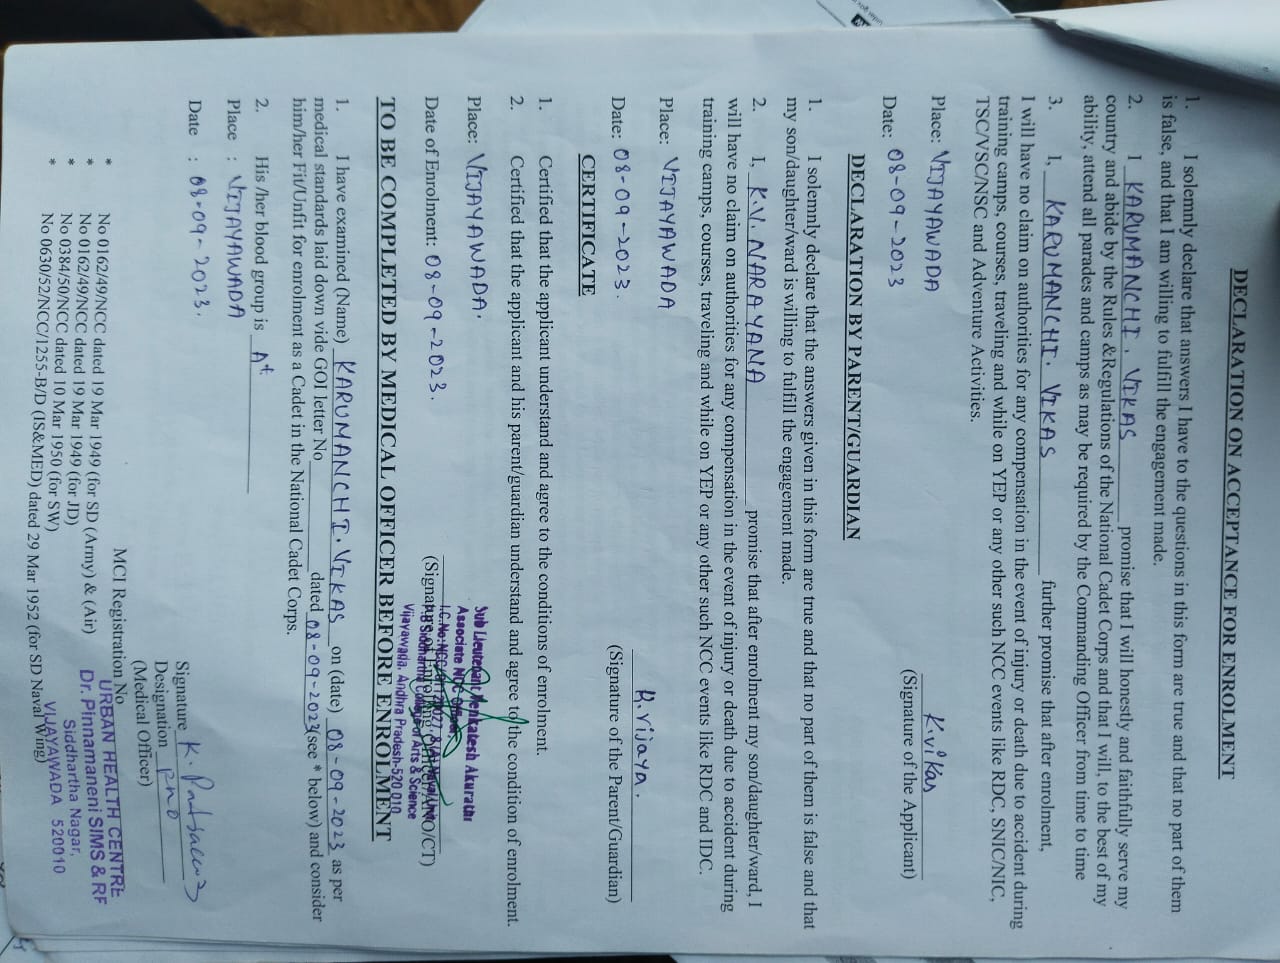 DECLARATION ON ACCEPTANCE FOR ENROLMENT
1. I solemnly declare that answers I have to the questions in this form are true and that no part of them
is false, and that I am willing to fulfill the engagement made.
2. I KARUMANCHI. VIKAS promise that I will honestly and faithfully serve my
country and abide by the Rules &Regulations of the National Cadet Corps and that I will, to the best of my
ability, attend all parades and camps as may be required by the Commanding Officer from time to time
3. I, KARUMANCHI. VIKAS further promise that after enrolment,
I will have no claim on authorities for any compensation in the event of injury or death due to accident during
training camps, courses, traveling and while on YEP or any other such NCC events like RDC, SNIC/NIC,
TSC/VSC/NSC and Adventure Activities.
Place: VIJAYAWADA
K.vikas
(Signature of the Applicant)
Date: 08-09-2023
DECLARATION BY PARENT/GUARDIAN
1. I solemnly declare that the answers given in this form are true and that no part of them is false and that
my son/daughter/ward is willing to fulfill the engagement made.
2. I, K.V. NARAYANA promise that after enrolment my son/daughter/ward, I
will have no claim on authorities for any compensation in the event of injury or death due to accident during
training camps, courses, traveling and while on YEP or any other such NCC events like RDC and IDC.
Place: VIJAYAWADA
R.vijaya.
Date: 08-09-2023.
(Signature of the Parent/Guardian)
CERTIFICATE
1. Certified that the applicant understand and agree to the conditions of enrolment.
2. Certified that the applicant and his parent/guardian understand and agree to the condition of enrolment.
Place: VIJAYAWADA.
Sub Lieutenant Venkatesh Akurathi
Associate NCC Officer,
Date of Enrolment: 08-09-2023.
P.B Siddhartha College of Arts & Science
Vijayawada. Andhra Pradesh-520 010
TO BE COMPLETED BY MEDICAL OFFICER BEFORE ENROLMENT
1. I have examined (Name) KARUMANCHI. VIKAS on (date) 08-09-2023 as per
medical standards laid down vide GOI letter No dated 08-09-2023 (see * below) and consider
him/her Fit/Unfit for enrolment as a Cadet in the National Cadet Corps.
2. His /her blood group is A+
Place : VIJAYAWADA
Date : 08-09-2023.
Signature
Designation
(Medical Officer)
MCI Registration No
URBAN HEALTH CENTRE
Dr. Pinnamaneni SIMS & RF
Siddhartha Nagar,
VIJAYAWADA 520010
* No 0162/49/NCC dated 19 Mar 1949 (for SD (Army) & (Air)
* No 0162/49/NCC dated 19 Mar 1949 (for JD)
* No 0384/50/NCC dated 10 Mar 1950 (for SW)
* No 0630/52/NCC/1255-B/D (IS&MED) dated 29 Mar 1952 (for SD Naval Wing)